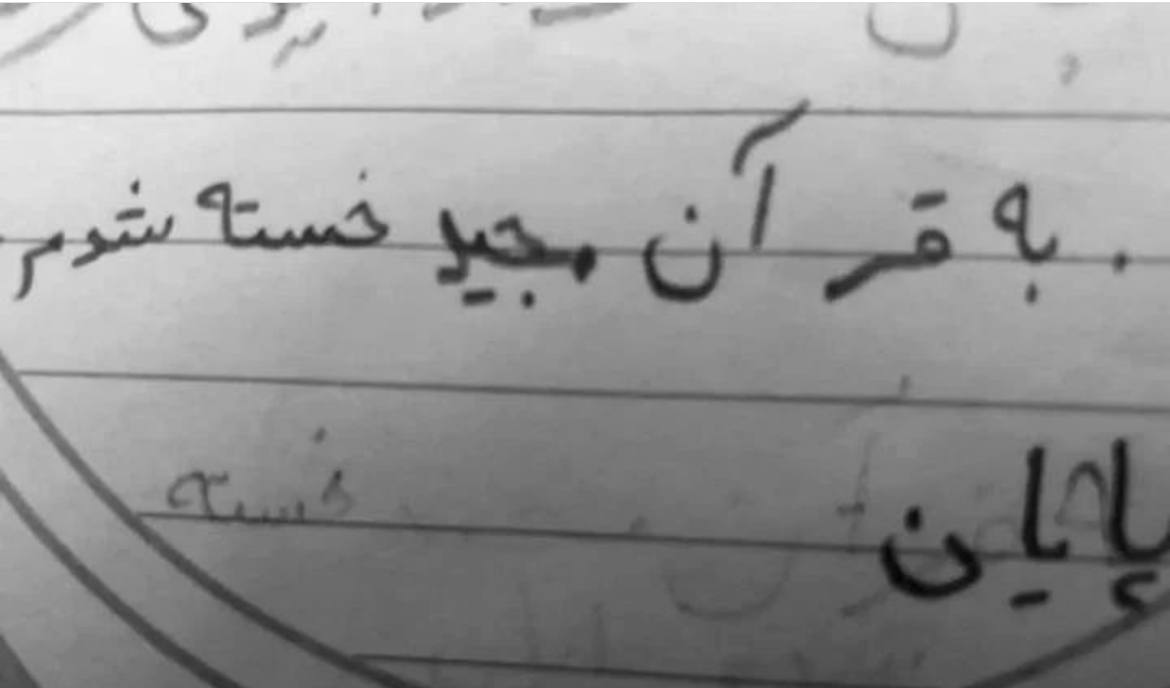 . به قرآن مجید خسته شدم
پایان
خسته